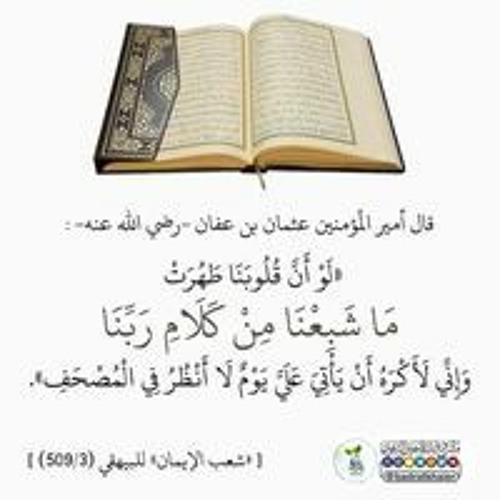 قال أمير المؤمنين عثمان بن عفان -رضي الله عنه- :
«لَوْ أَنَّ قُلُوبَنَا طَهُرَتْ
مَا شَبِعْنَا مِنْ كَلَامِ رَبِّنَا
وَإِنِّي لَأَكْرَهُ أَنْ يَأْتِيَ عَلَيَّ يَوْمٌ لَا أَنْظُرُ فِي الْمُصْحَفِ».
[ «شعب الإيمان» للبيهقي (509/3) ]